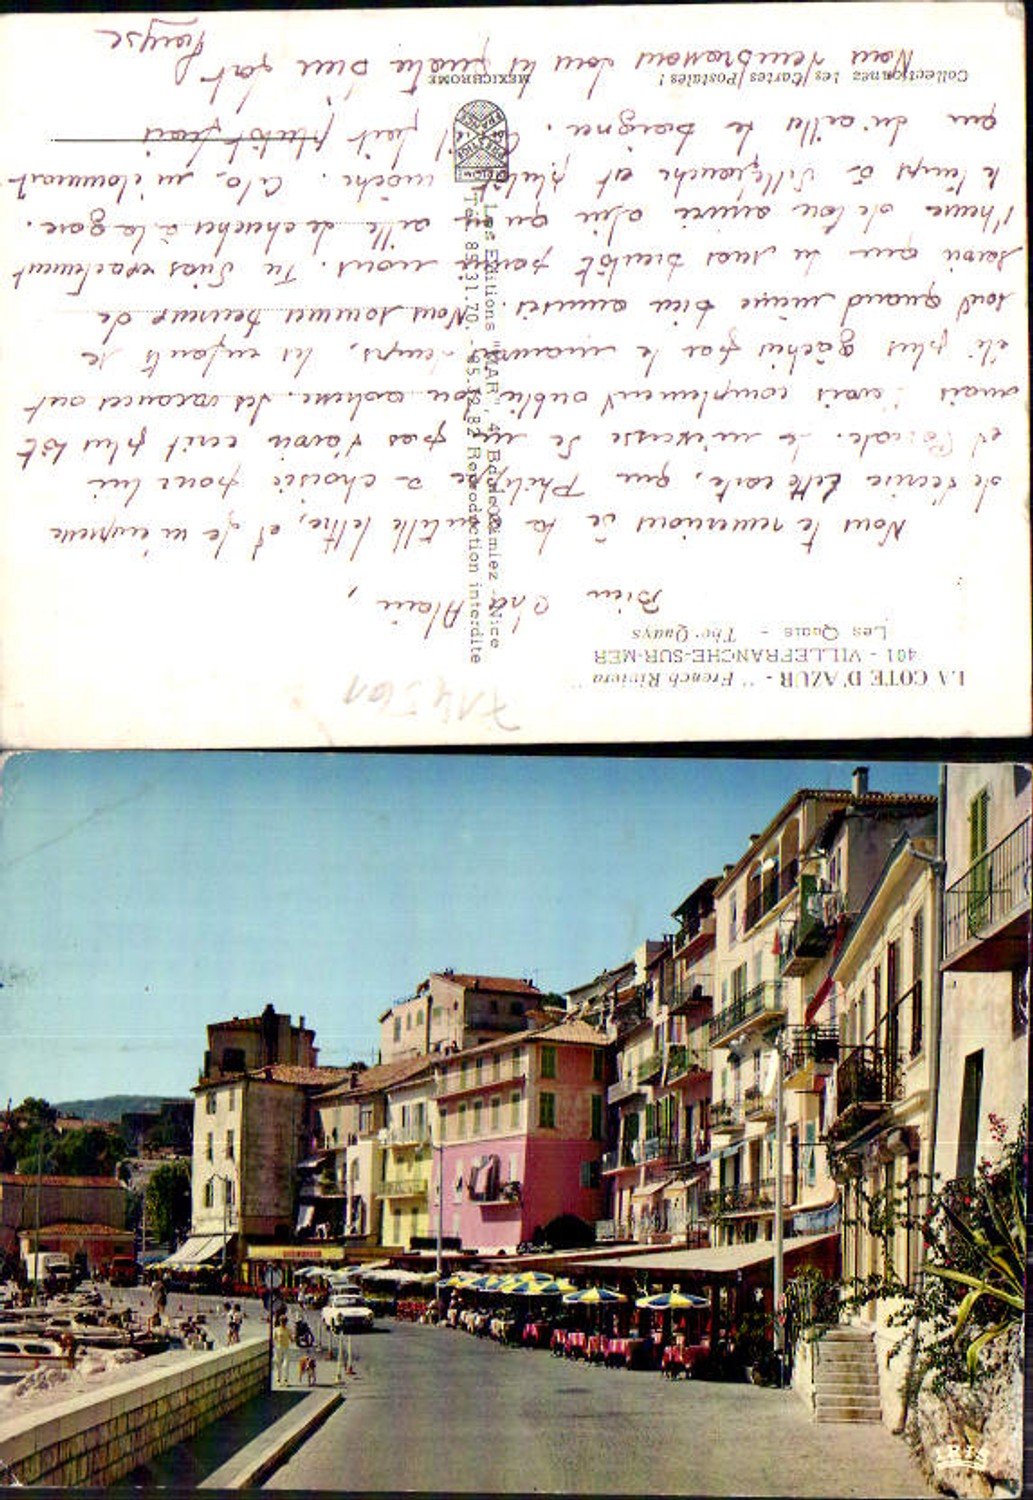 LA COTE D'AZUR - "French Riviera"
401 - VILLEFRANCHE-SUR-MER
Les Quais - The Quays
Bien cher Alain,
Nous te remercions de ta gentille lettre, et je m'empresse
de t'écrire cette carte, que Philippe a choisie pour lui
et Pascale. Je m'excuse de ne pas t'avoir écrit plus tôt
mais j'avais complètement oublié ton adresse. Les vacances ont
été plus gâchées par le mauvais temps, les enfants se
sont quand même bien amusés. Nous sommes heureux de
savoir que tu seras bientôt parmi nous. Tu diras exactement
l'heure de ton arrivée afin qu'on aille te chercher à la gare.
le temps à Villefranche est plutôt moche. Cela m'étonnerait
qu'on aille se baigner. Il fait plutôt frais
Nous t'embrassons tous les quatre bien fort
Les Editions "MAR", Bd de Cimiez - Nice
Tél. 85.31.70. - 85.12.82 Reproduction interdite
EDITION
PRESTIGE
DE LA
FRANCE
MEXICHROME
Collectionnez les Cartes Postales !
IRIS